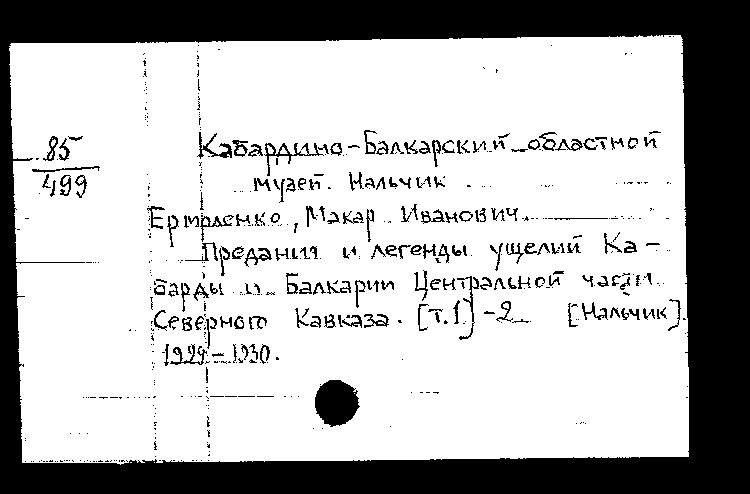 85
499
Кабардино-Балкарский областной
музей. Нальчик.
Ермоленко, Макар Иванович.
Предания и легенды ущелий Ка-
барды и Балкарии Центральной части
Северного Кавказа. [т.1]-2 [Нальчик].
1929-1930.